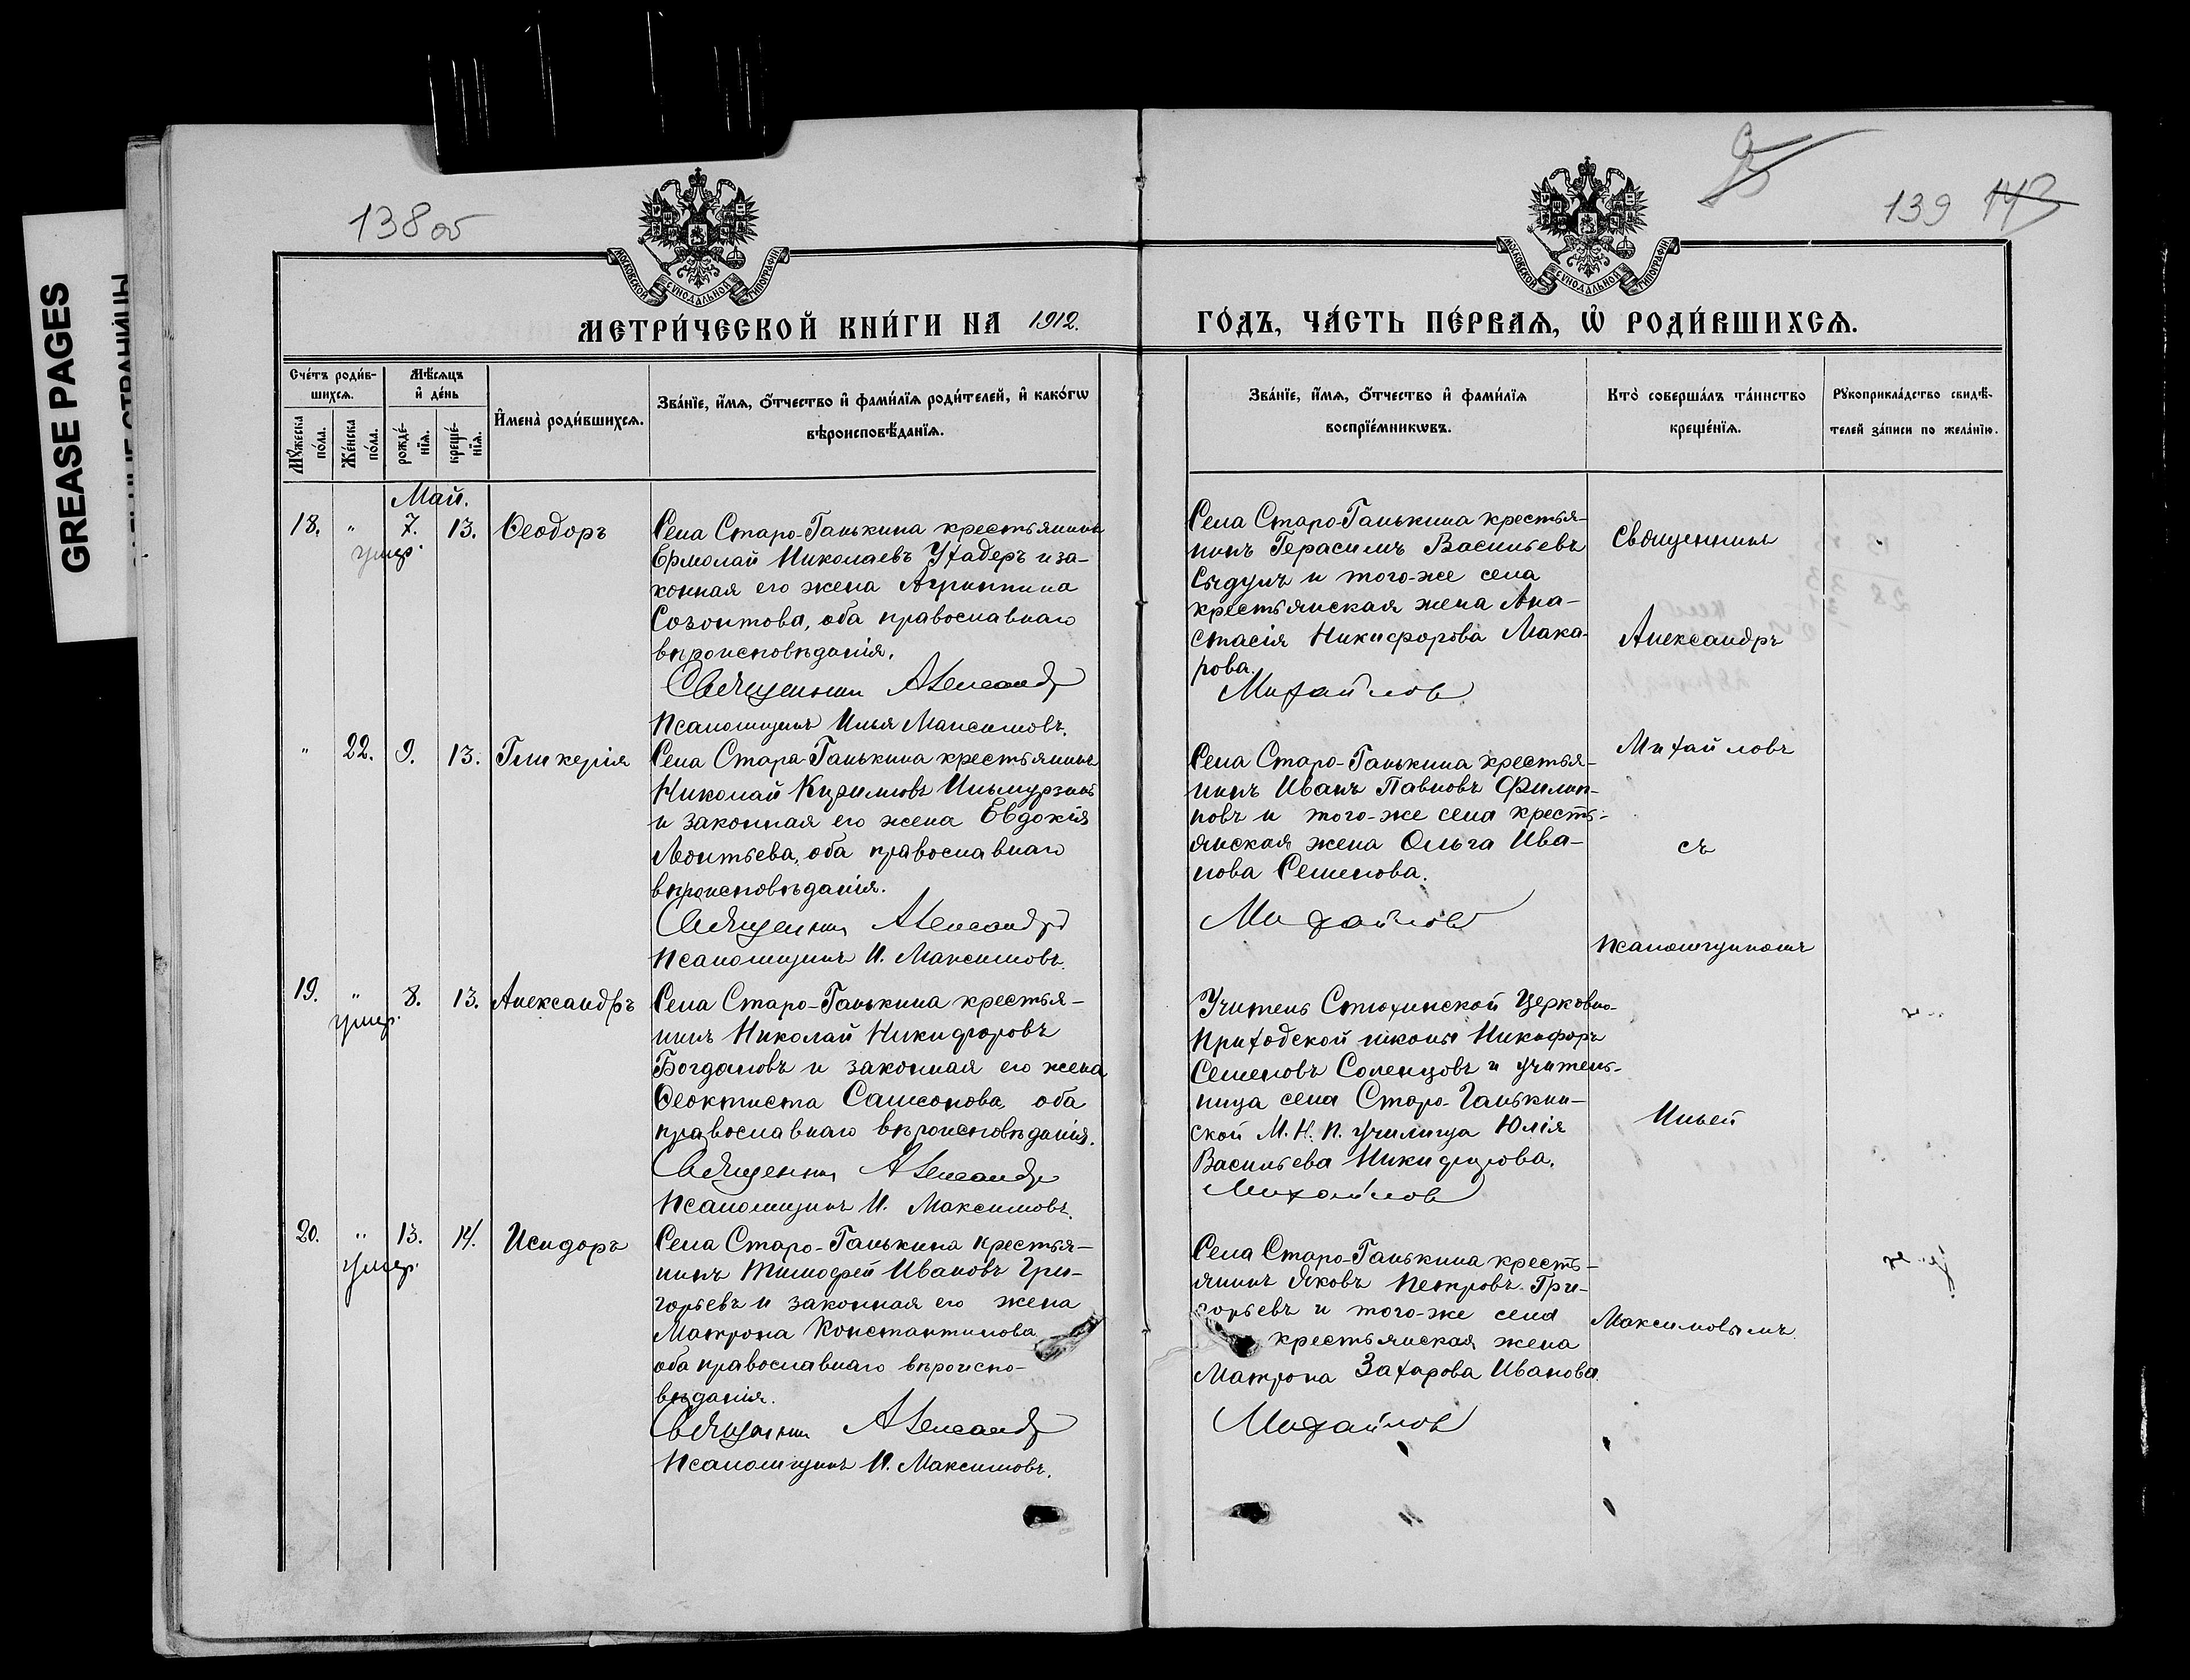 GREASE PAGES
138 об
139 143
МОСКОВСКОЙ СѴНОДАЛЬНОЙ ТИПОГРАФІИ
МОСКОВСКОЙ СѴНОДАЛЬНОЙ ТИПОГРАФІИ
МЕТРИ́ЧЕСКОЙ КНИ́ГИ НА 1912.
ГО́ДЪ, ЧА́СТЬ ПЕ́РВАѦ, Ѡ҆ РОДИ́ВШИХСѦ.
Сче́тъ роди́в-
шихсѧ.
Мꙋ́жеска по́ла.
Же́нска по́ла.
Мѣ́сѧцъ и҆ де́нь
рожде́-
нїѧ.
креще́-
нїѧ.
И҆мена̀ роди́вшихсѧ.
Зва́нїе, и҆́мѧ, ѻ҆́тчество и҆ фами́лїѧ роди́телей, и҆ како́гѡ
вѣроисповѣ́данїѧ.
Зва́нїе, и҆́мѧ, ѻ҆́тчество и҆ фами́лїѧ
воспрїе́мникѡвъ.
Кто̀ соверша́лъ та́инство
креще́нїѧ.
Рꙋкоприкла́дство свидѣ́-
телей за́писи по жела́нїю.
Май.
18. " 7. 13. Ѳеодоръ
умер.
Села Старо-Ганькина крестьянинъ
Ермолай Николаевъ Ухадеръ и за-
конная его жена Агриппина
Созонтова, оба православнаго
вѣроисповѣданія.
Священник Александр
Псаломщикъ Илья Максимовъ.
Села Старо-Ганькина крестья-
нинъ Герасимъ Васильевъ
Сядумъ и того-же села
крестьянская жена Ана-
стасія Никифорова Мака-
рова.
Михайлов
Священникъ
Александръ
Михайловъ
съ
псаломщикомъ
Ильей
Максимовымъ.
" 22. 9. 13. Гликерія
Села Старо-Ганькина крестьянинъ
Николай Кириловъ Ильмурзинъ
и законная его жена Евдокія
Леонтьева, оба православнаго
вѣроисповѣданія.
Священник Александр
Псаломщикъ И. Максимовъ.
Села Старо-Ганькина крестья-
нинъ Иванъ Павловъ Филип-
повъ и того-же села кресть-
янская жена Ольга Ива-
нова Семенова.
Михайлов
19. " 8. 13. Александръ
умер.
Села Старо-Ганькина крестья-
нинъ Николай Никифоровъ
Богдановъ и законная его жена
Ѳеоктиста Самсонова, оба
православнаго вѣроисповѣданія.
Священник Александр
Псаломщикъ И. Максимовъ.
Учитель Стюхинской Церковно-
Приходской школы Никифоръ
Семеновъ Соленцовъ и учитель-
ница села Старо-Ганькин-
ской М. Н. П. училища Юлія
Васильева Никифорова.
Михайлов
20. " 13. 14. Исидоръ
умер.
Села Старо-Ганькина крестья-
нинъ Тимофей Ивановъ Гри-
горьевъ и законная его жена
Матрона Константинова
оба православнаго вѣроиспо-
вѣданія.
Священник Александр
Псаломщикъ И. Максимовъ.
Села Старо-Ганькина кресть-
янинъ Яковъ Петровъ Гри-
горьевъ и того-же села
крестьянская жена
Матрона Захарова Иванова.
Михайлов